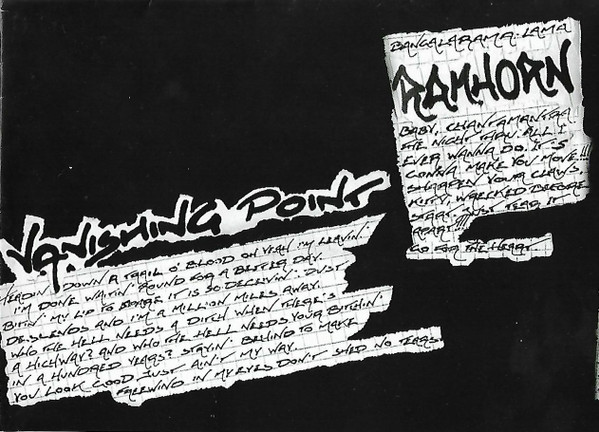 VANISHING POINT
HEADIN' DOWN A TRAIL O' BLOOD OH YEAH I'M LEAVIN'.
I'M DONE WAITIN' 'ROUND FOR A BETTER DAY.
BITIN' MY LIP TO IT IS SO DECEIVIN'. DUST
DESCENDS AND I'M A MILLION MILES AWAY.
WHO THE HELL NEEDS A DITCH WHEN THERE'S
A HIGHWAY? AND WHO THE HELL NEEDS YOUR BITCHIN'
IN A HUNDRED YEARS? STAYIN' BEHIND TO MAKE
YOU LOOK GOOD JUST AIN'T MY WAY.
FREEWIND IN MY EYES DON'T SHED NO TEARS.
BANGALARAMA LAMA
RAMHORN
BABY, CHANTAMANTRA
THE NIGHT THRU. ALL I
EVER WANNA DO. IT'S
GONNA MAKE YOU MOVE!!!
SHARPEN YOUR CLAWS,
KITTY, WRECKED BEFORE
START. JUST TEAR IT
APART!!!
GO FOR THE HEART.